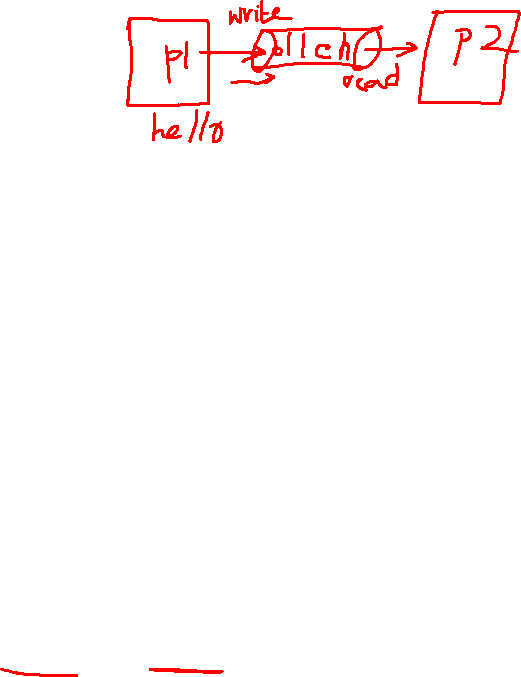 write
p1 olleh p2
read
hello